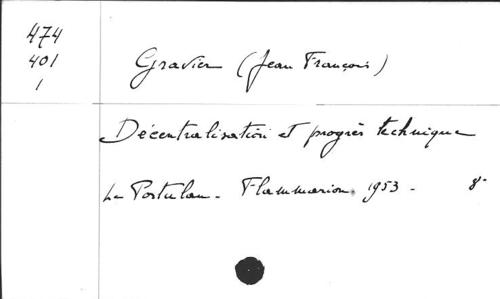 474
401
1
Gravier (Jean François)
Décentralisation et progrès technique
Le Portulan - Flammarion. 1953 - 8°